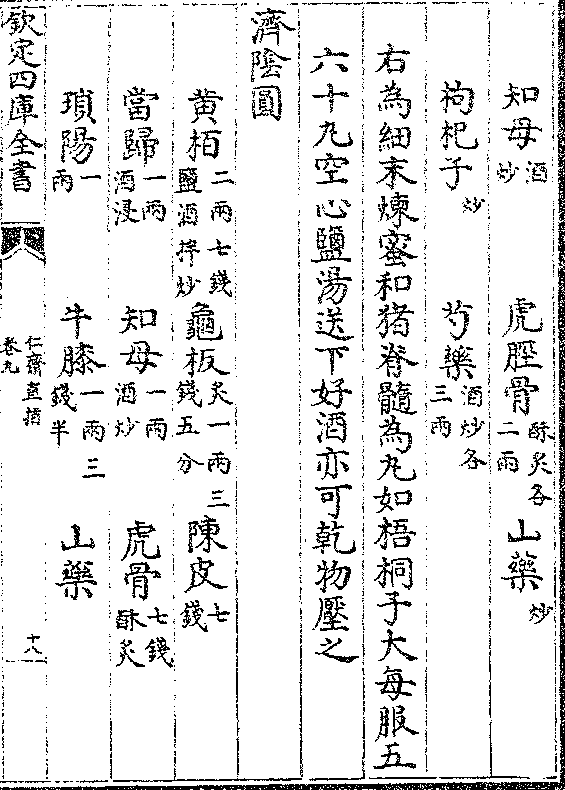 知母酒炒 虎脛骨酥炙各二兩 山藥炒
枸杞子炒 芍藥酒炒各三兩
右為細末煉蜜和猪脊髓為丸如梧桐子大每服五
六十丸空心鹽湯送下好酒亦可乾物壓之
濟陰圓
黄栢二兩七錢鹽酒拌炒 龜板炙一兩三錢五分 陳皮七錢
當歸一兩酒浸 知母一兩酒炒 虎骨七錢酥炙
瑣陽一兩 牛膝一兩三錢半 山藥
欽定四庫全書 仁齋直指卷九 十八